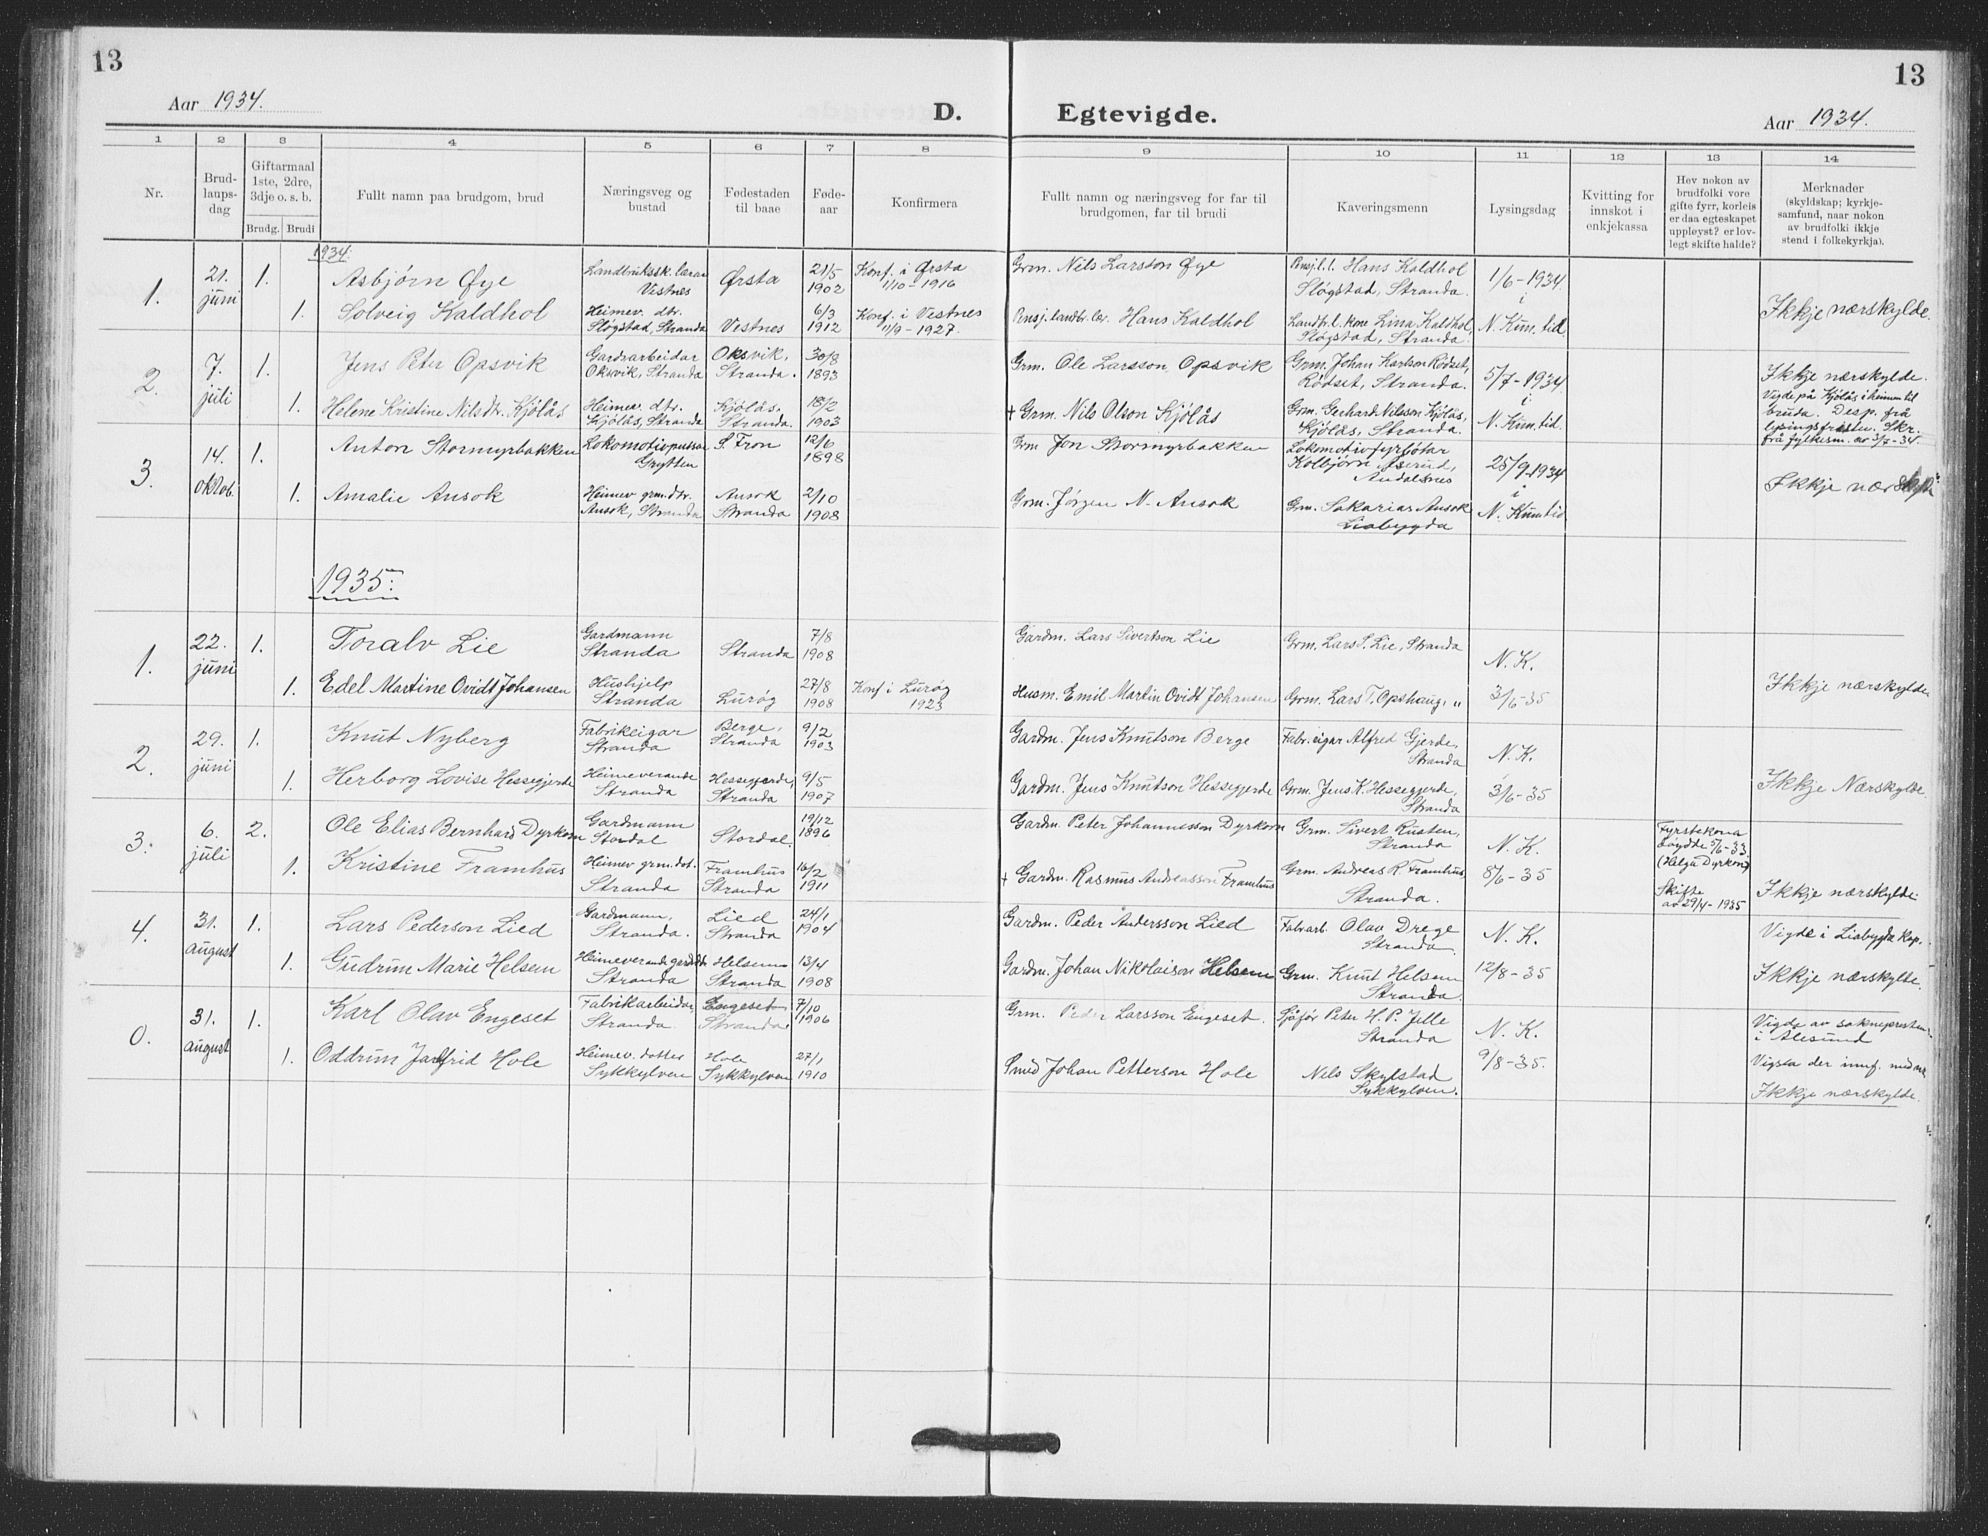 13
13
Aar 1934.
D. Egtevigde.
Aar 1934.
1 2 3 4 5 6 7 8 9 10 11 12 13 14
Nr.
Brud-
laups-
dag
Giftarmaal
1ste, 2dre,
3dje o. s. b.
Brudg. Brudi
Fullt namn paa brudgom, brud
Næringsveg og
bustad
Fødestaden
til baae
Føde-
aar
Konfirmera
Fullt namn og næringsveg for far til
brudgomen, far til brudi
Kaveringsmenn
Lysingsdag
Kvitting for
innskot i
enkjekassa
Hev nokon av
brudfolki vore
gifte fyrr, korleis
er daa egteskapet
uppløyst? er lov-
legt skifte halde?
Merknader
(skyldskap; kyrkje-
samfund, naar nokon
av brudfolki ikkje
stend i folkekyrkja).
1934.
1.
21.
juni
1.
Asbjørn Øye
Landbruksk. lærar
Vestnes
Ørsta
21/5
1902
Konf. i Ørsta
1/10 - 1916
Grm. Nils Larsson Øye
Pensj. l. l. Hans Kaldhol
Sløgstad, Stranda.
1/6 - 1934
i
1.
Solveig Kaldhol
Heimev. dtr.
Sløgstad, Stranda
Vestnes
6/3
1912
Konf. i Vestnes
11/9 - 1927.
Pensj. landbr. lær. Hans Kaldhol
Landbr. l. kone Lina Kaldhol
Sløgstad, Stranda.
N. Kun. tid.
Ikkje nærskylde.
2.
7.
juli
1.
Jens Peter Opsvik
Gardsarbeidar
Oksvik, Stranda
Oksvik,
Stranda.
30/8
1893
Grm. Ole Larsson Opsvik
Grm. Johan Karlson Rødset,
Rødset, Stranda.
5/7 - 1934
i
Ikkje nærskylde.
1.
Helene Kristine Nilsdtr. Kjølås
Heimev. dtr.
Kjølås, Stranda
Kjølås.
Stranda.
18/2
1903
+ Grm. Nils Olson Kjølås
Grm. Gerhard Nilsson Kjølås,
Kjølås, Stranda.
N. Kun. tid.
Vigde på Kjølås i heimen til
bruda. Desp. frå
lysingsfristen. Skr.
frå fylkesm. av 3/7 - 34
3.
14.
oktob.
1.
Anton Stormyrbakken
Lokomotivpussar
Grytten
S. Fron
12/6
1898
Grm Jon Stormyrbakken
Lokomotivfyrbøtar
Kolbjørn Aserud,
Åndalsnes
25/9 - 1934
i
1.
Amalie Ansok
Heimev grm. dtr.
Ansok, Stranda
Ansok
Stranda
2/10
1908
Grm. Jørgen N. Ansok
Grm. Sakarias Ansok
Liabygda
N. Kun. tid
Ikkje nærskylde
1935:
1.
22.
juni
1.
Toralv Lie
Gardmann
Stranda
Stranda
7/8
1908
Gardm. Lars Sivertson Lie
Grm. Lars S. Lie, Stranda
N. K.
1.
Edel Martine Ovidt Johansen
Hushjelp
Stranda
Lurøy
27/8
1908
Konf i Lurøy
1923
Husm. Emil Martin Ovidt Johansen
Grm. Lars T. Opshaug, "
3/6 - 35
Ikkje nærskylde
2.
29.
juni
1.
Knut Nyberg
Fabrikeigar
Stranda
Berge,
Stranda
9/2
1903
Gardm. Jens Knutson Berge
Fabr. eigar Alfred Gjerde,
Stranda
N. K.
1.
Herborg Lovise Hessegjerde
Heimeverande
Stranda
Hessegjerde,
Stranda
9/5
1907
Gardm. Jens Knutson Hessegjerde
Grm. Jens K. Hessegjerde,
Stranda
3/6 - 35
Ikkje Nærskylde.
3.
6.
juli
2.
Ole Elias Bernhard Dyrkorn
Gardmann
Stordal
Stordal.
19/12
1896
Gardm. Peter Johannesson Dyrkorn
Grm. Sivert Rusten,
Stranda
N. K.
Fyrstekona
døydde 5/6 - 33
(Helga Dyrkorn)
1.
Kristine Framhus
Heimev grm. dot.
Stranda
Framhus
Stranda
16/2
1911
+ Gardm. Rasmus Andreasson Framhus
Grm. Andreas R. Framhus,
Stranda.
8/6 - 35
Skifte
av 29/4 - 1935
Ikkje nærskylde.
4.
31.
august
1.
Lars Pederson Lied
Gardmann,
Stranda.
Lied
Stranda
24/1
1904
Gardm. Peder Andersson Lied
Fabrarb. Olav Drege
Stranda
N. K.
Vigde i Liabygda kap.
1.
Gudrun Marie Helsem
Heimeverande
Stranda
Helsem
Stranda
13/4
1908
Gardm. Johan Nikolaison Helsem
Grm. Knut Helsem
Stranda.
12/8 - 35
Ikkje nærskylde.
0.
31.
august
1.
Karl Olav Engeset
Fabrikarbeidar
Stranda
Engeset
Stranda
7/10
1906
Grm. Peder Larsson Engeset.
Sjåfør Peter H. P. Jelle
Stranda
N. K.
Vigde av soknepresten
i Ålesund
1.
Oddrun Jarfrid Hole
Heimev. dotter
Sykkylven
Hole
Sykkylven
27/1
1910
Smed Johan Petterson Hole
Nils Skylstad
Sykkylven.
9/8 - 35.
Vigsla der innf. med nr.
Ikkje nærskylde.